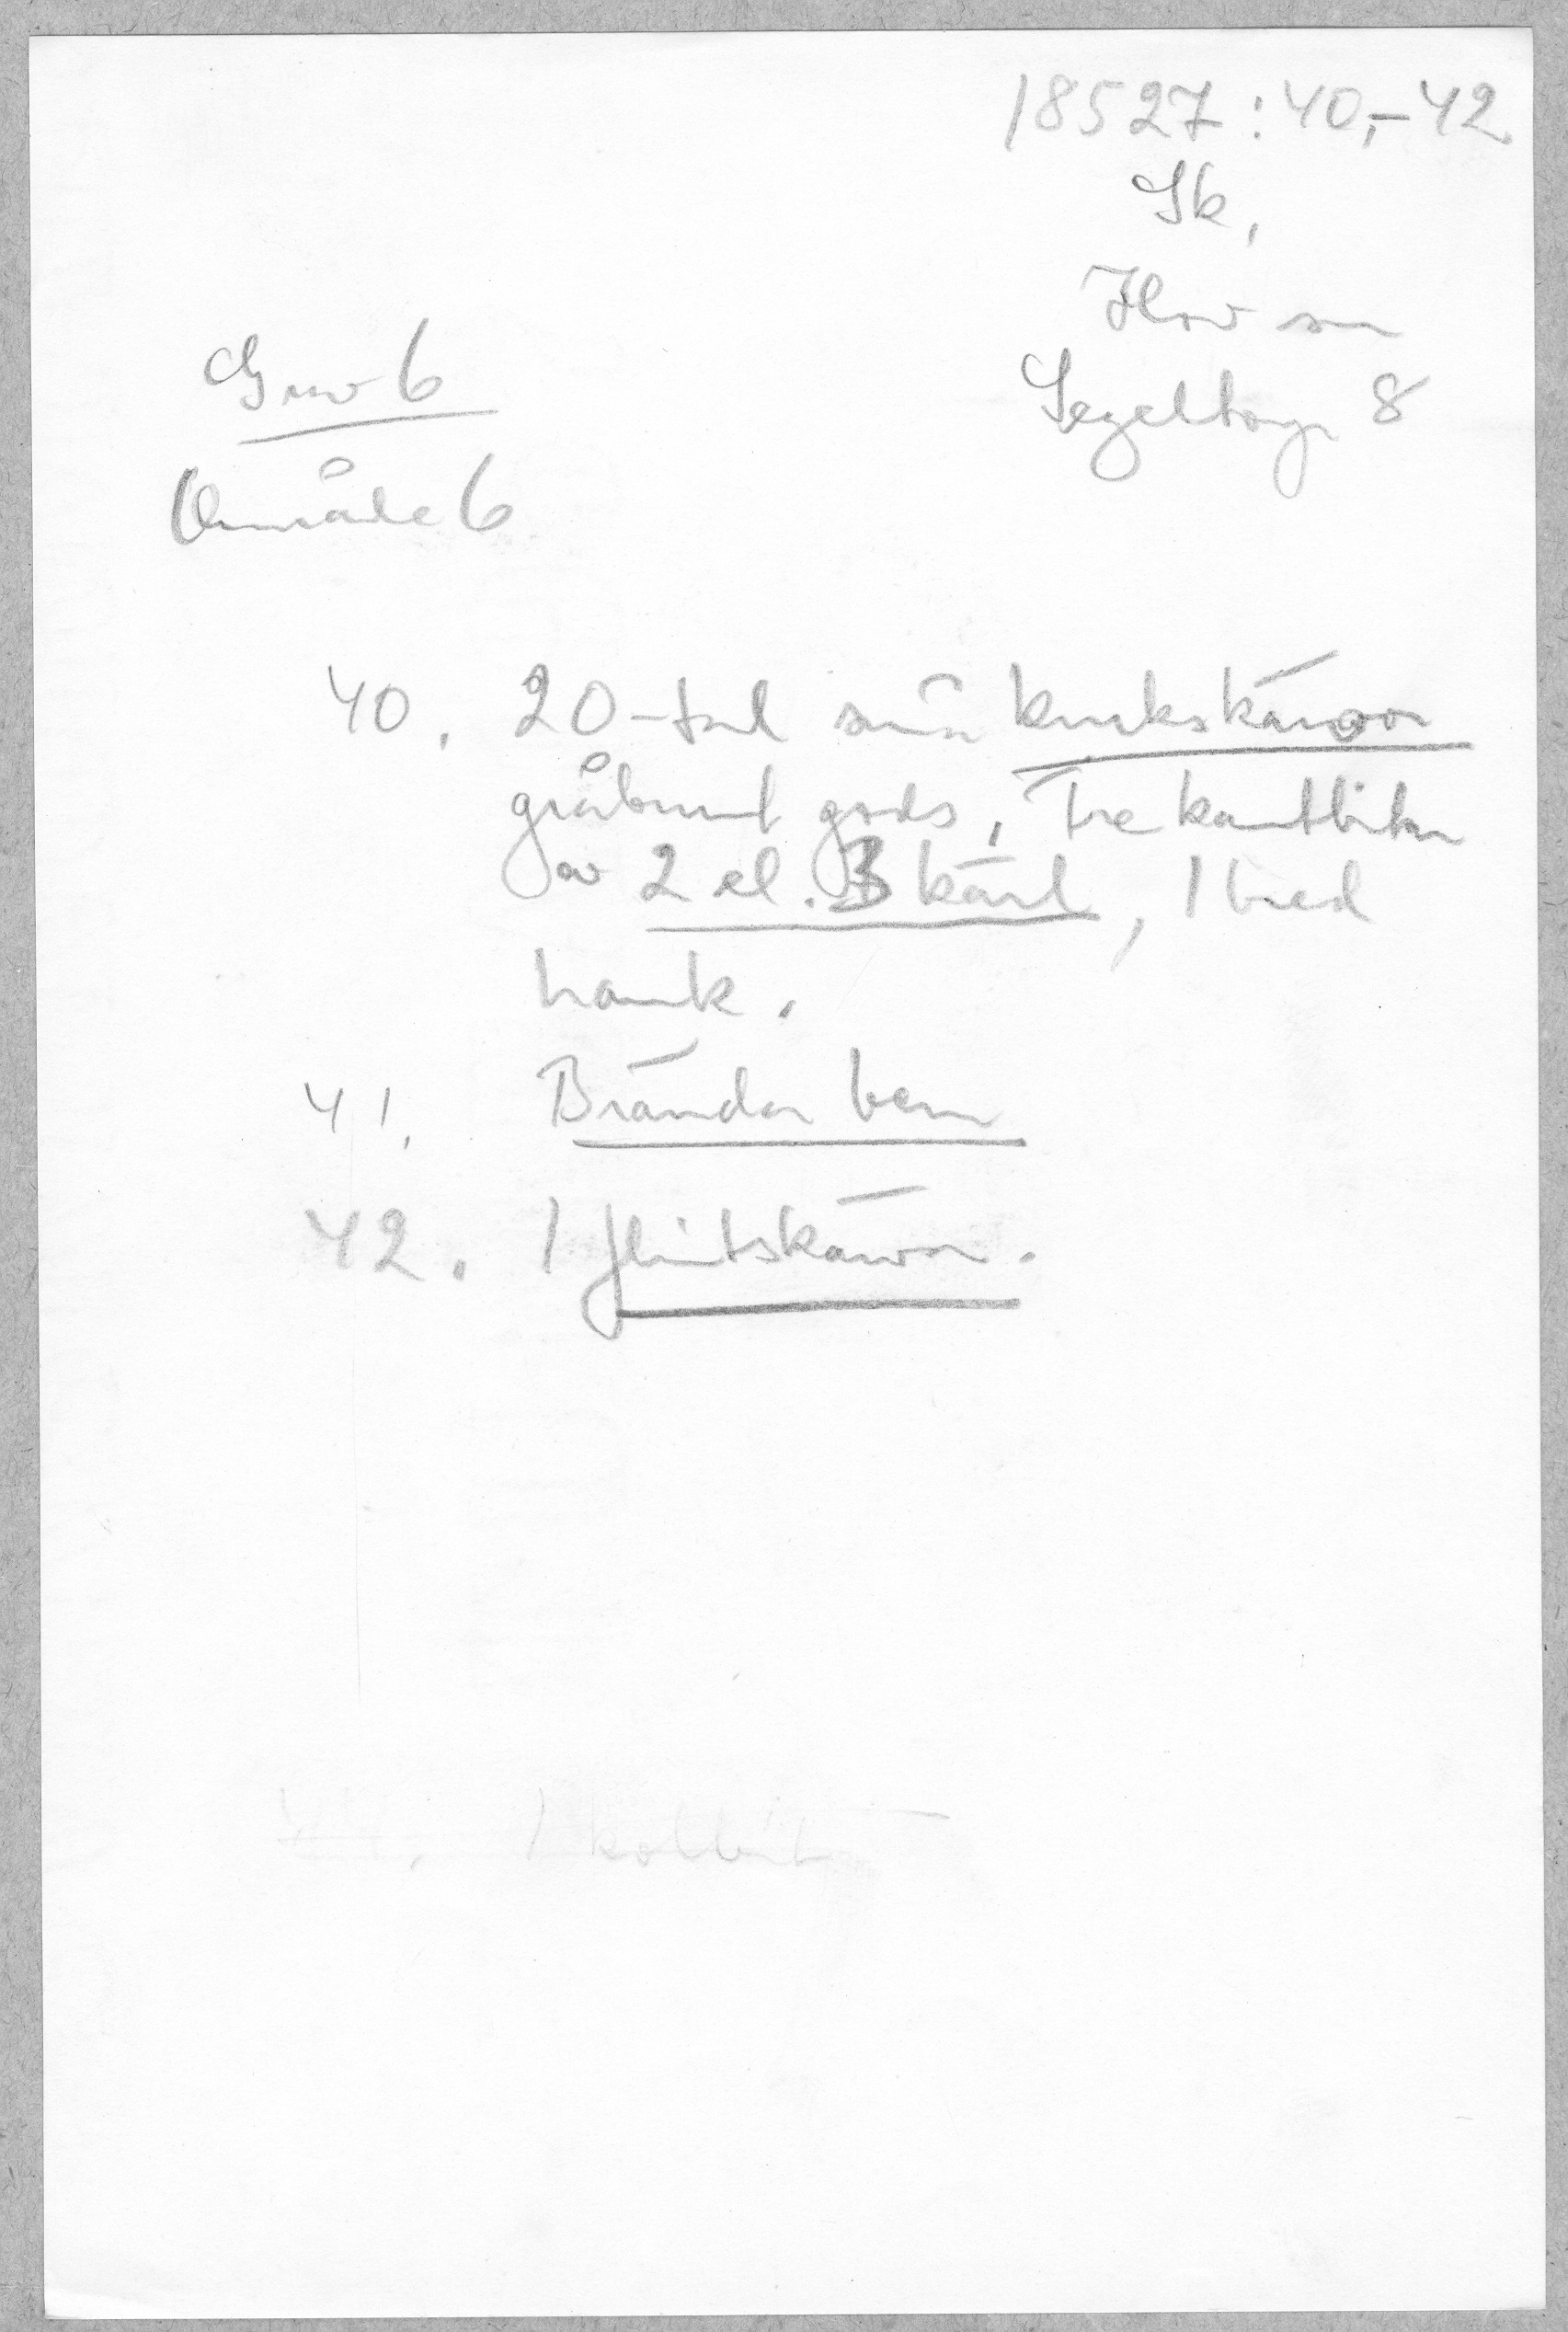 18527:40,-42
Sk,
Hov sn
Segeltorp 8
Grav 6
Område 6
40. 20-tal små krukskärvor
gråbrunt gods, Tre kantbitar
av 2 el. 3 kärl, 1 bred
hank.
41. Brända ben
42. 1 flintskärva.
1 kolbit